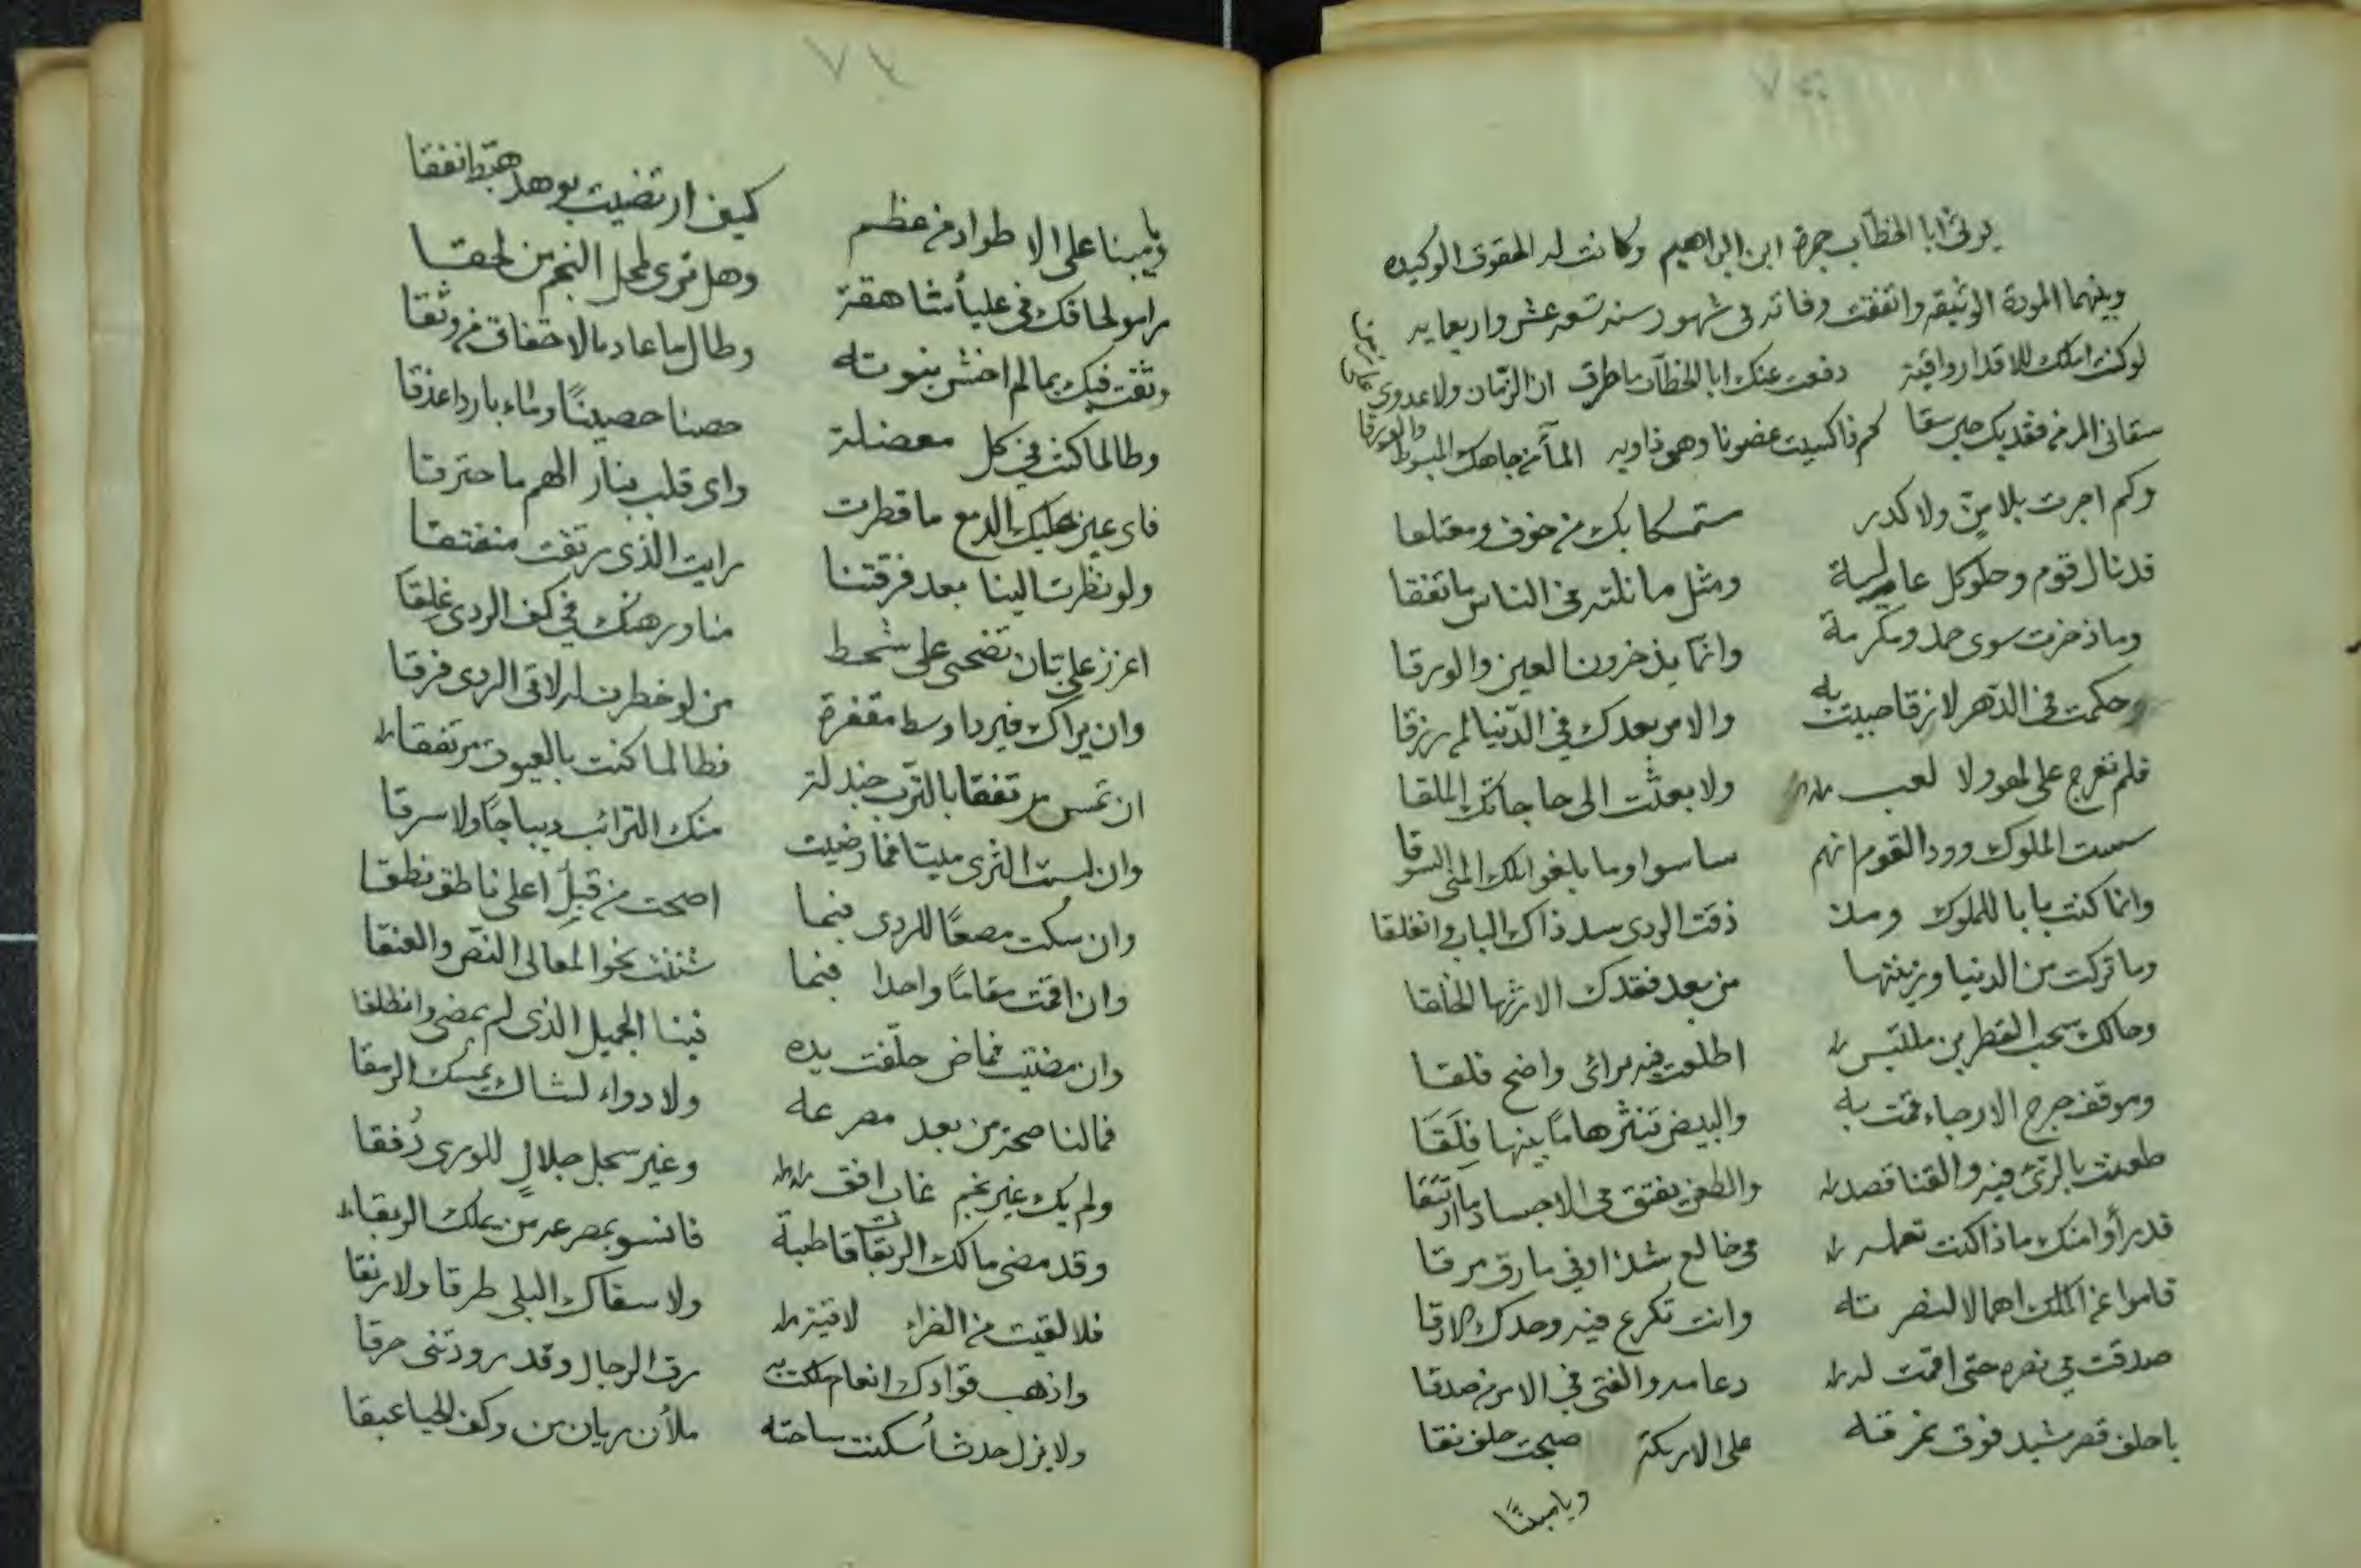 يرثى ابا الخطاب حمزة ابن ابراهيم وكانت له الحقوق الوكيده
وبينهما المودة الوثيقه واتفقت وفاته فى شهور سنه تسعه عشر واربعمايه
لوكنت املك للاقدار واقية دفعت عنك ابا الخطاب ما طرق ان الزمان ولا عدوى
سقانى المر من فقديك حين سقا كم ذا كسيت غصونا وهى ذاويه الماء من جاهك المبسوط والورقا
وكم اجرت بلا من ولا كدر مستمسكا بك من خوف ومعتلقا
قد نال قوم وحلو كل عالية ومثل ما نلته فى الناس ما اتفقا
وما ذخرت سوى حمد ومكرمة وانما يذخرون العين والورقا
وحكمت فى الدهر لا رزقا حبيت به والامر بعدك فى الدنيا لمن رزقا
فلم تعرج على لهو ولا لعب ولا بعثت الى حاجاتك الملقا
سست الملوك وود القوم انهم ساسوا وما بلغوا تلك المنى السوقا
وانما كنت بابا للملوك ومذ ذقت الردى سد ذاك الباب وانغلقا
وما تركت من الدنيا وزينتها من بعد فقدك الا رثها الخلقا
وحالك سحب القطرين ملتبس اطلعت فيه برائى واضح فلقا
وموقف حرج الارجاء قمت به والبيض تنثر هاما بينها فِلَقَا
طعنت بالرئ فيه والقنا قصد والطعن يفتق فى الاجساد ما ارتتقا
قد رأوا منك ماذا كنت تعمله فى خالع شذ او فى مارق مرقا
قاموا عن الملك اهمالا لنصرته وانت تكرع فيه وحدك الرنقا
صدقت فى نصره حتى اقمت له دعامه والفتى فى الامر من صدقا
يا حلف قصر مشيد فوق نمرقه على الاريكة اصبحت حلف نقا
ويا مبينًا
ويا مبينا على الاطواد من عظم كيف ارتضيت بوهد هبط انفقا
راموا لحاقك فى علياء شاهقة وهل ترى لمحل النجم من لحقا
وثقت فيك بما لم اخش نبوته وطال ما عاد بالاخفاق من وثقا
وطالما كنت فى كل معضلة حصنا حصينًا وماء باردا غدقا
فاى عين عليك الدمع ما قطرت واى قلب بنار الهم ما احترقا
ولو نظرت الينا بعد فرقتنا رايت الذى رتقت منفتقا
اعزز على بان تضحى على شحط منا ورهنك فى كف الردى غلقا
وان يراك فيردا وسط مقفرة من لو خطرت له لاقى الردى فرقا
ان تمس مرتفقا بالترب جندلة فطالما كنت بالعيوق مرتفقا
وان لبست الثرى ميتا فما رضيت منك الترائب ديباجًا ولا سرقا
وان سكت مصعًا للردى فبما اصبحت من قبل اعلى ناطق نطقا
وان اقمت مقامًا واحدا فبما شننت نحو المعالى النص والعنقا
وان مضيت فماض خلفت يده فينا الجميل الذى لم يمض وانطلقا
فما لنا صحة من بعد مصرعه ولا دواء لشاك يمسك الرمقا
ولم يك غير نجم غاب افق وغير سجل جلال للورى دُفقا
وقد مضى مالك الربقات قاطبة فانسو بمصرعه من يملك الربقا
فلا لقيت من الضراء لاقيته ولا سقاك البلى طرقا ولا رنقا
واذهب فوادك انعام ملكت به رق الرجال وقد زودتنى حرقا
ولا يزل جدثا أسكنت ساحته ملأن ريان من وكف الحيا عبقا